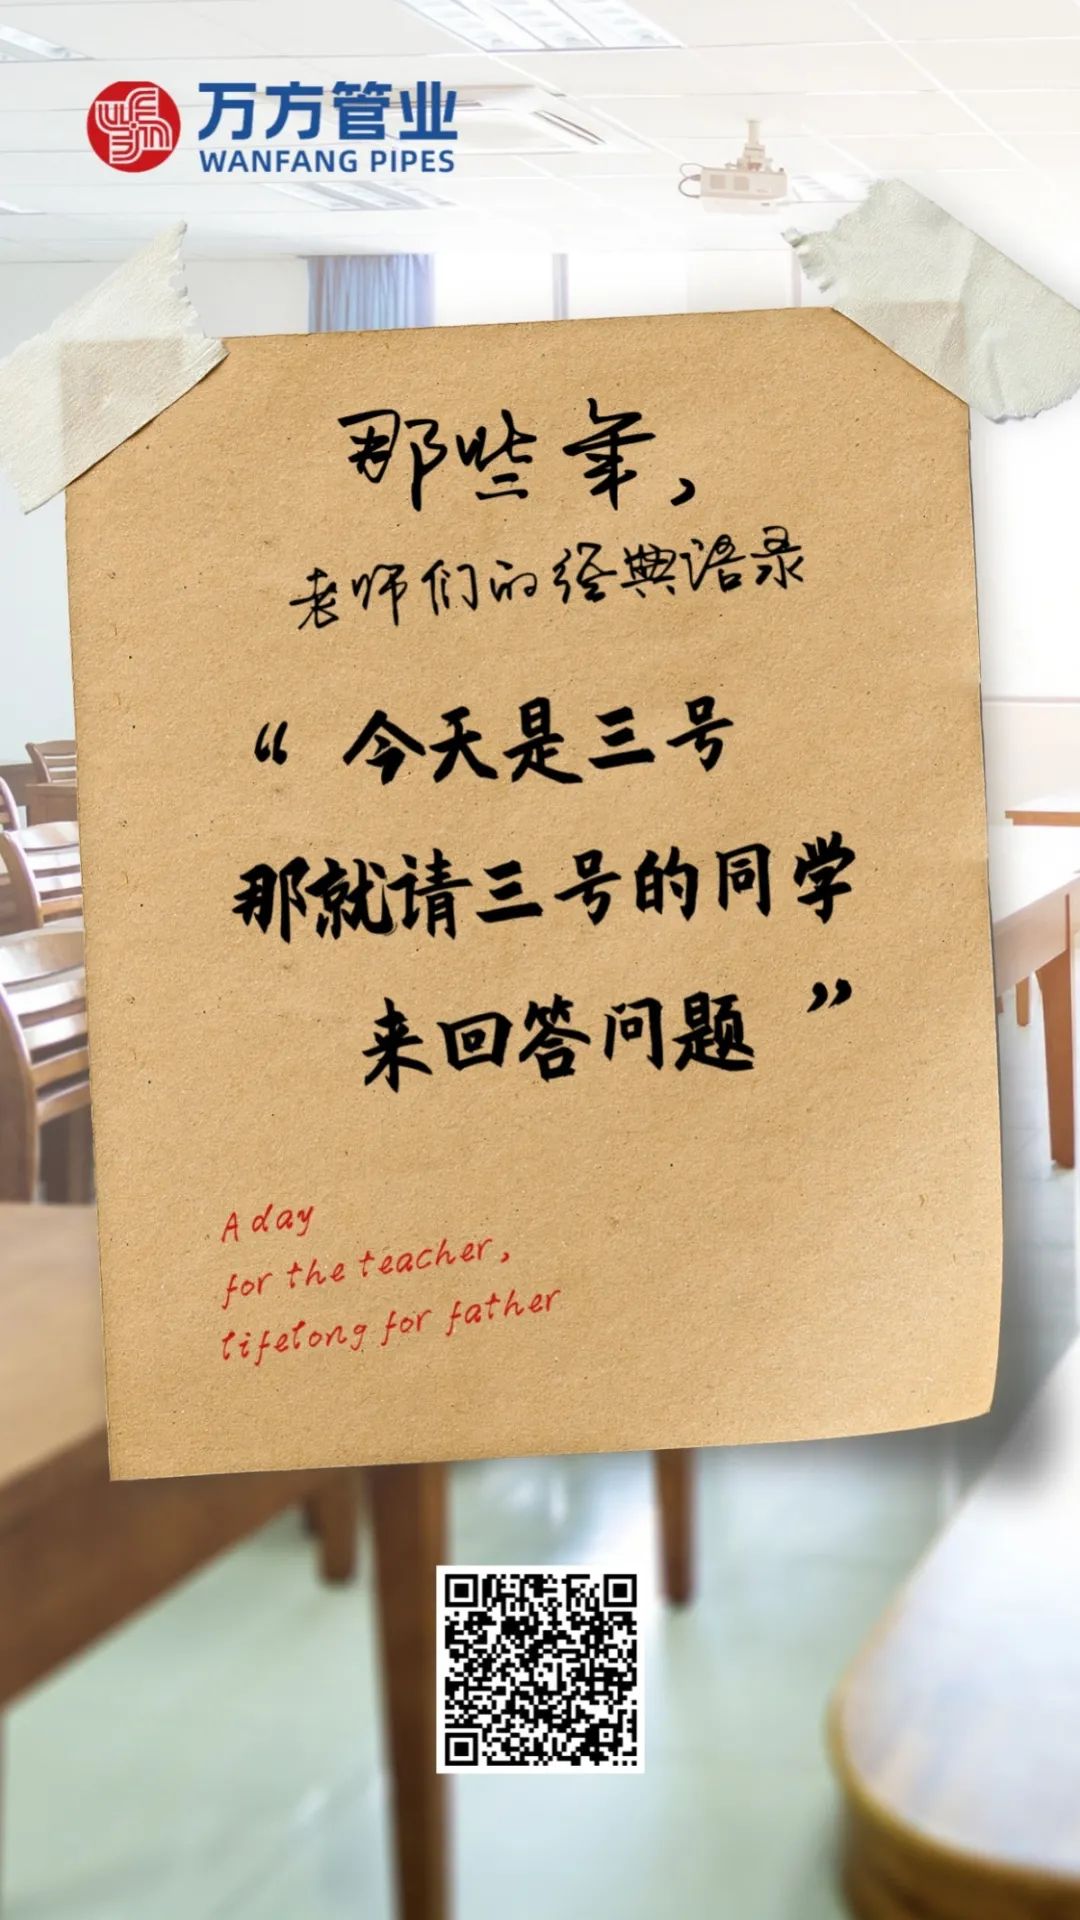 万方管业
WANFANG PIPES
那些年，
老师们的经典语录
“ 今天是三号
那就请三号的同学
来回答问题 ”
A day
for the teacher,
lifelong for father